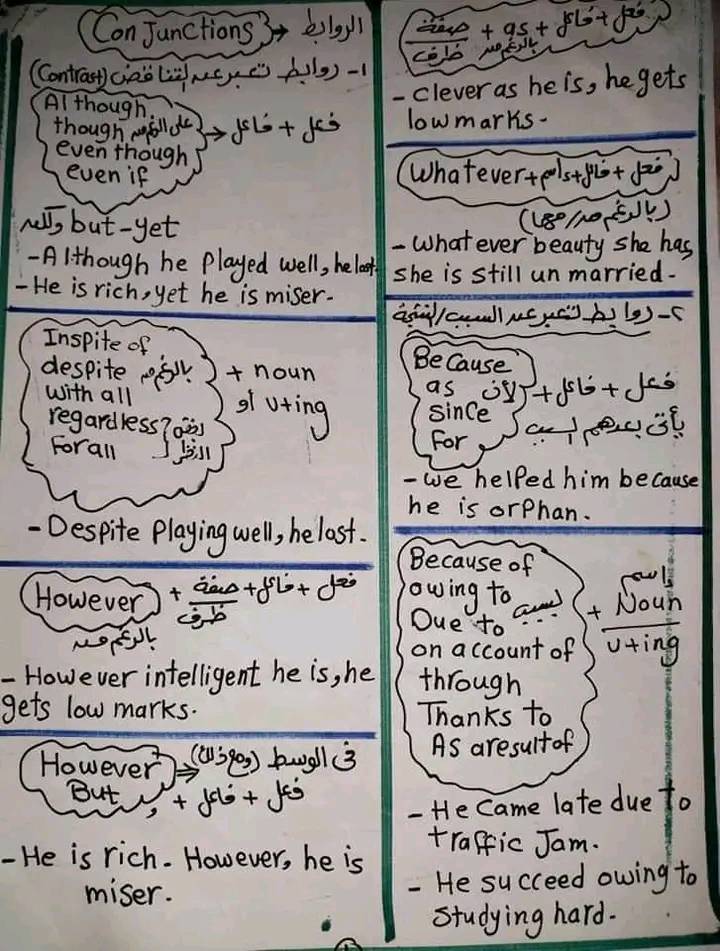 Conjunctions → الروابط
١- روابط تعبر عن التناقض (Contrast)
Although
though على الرغم من → فاعل + فعل
even though
even if
ولكن but-yet
- Although he Played well, he lost.
- He is rich, yet he is miser.
Inspite of
despite بالرغم من + noun
with all أو v+ing
regardless بغض
For all النظر
- Despite Playing well, he lost.
However + صفة + فاعل + فعل
ظرف
بالرغم من
- However intelligent he is, he
gets low marks.
However → فى الوسط (ومع ذلك)
But , + فاعل + فعل
- He is rich. However, he is
miser.
صفة + as + فاعل + فعل
ظرف بالرغم من
- clever as he is, he gets
low marks -
Whatever + اسم + فاعل + فعل
(بالرغم من / مهما)
- Whatever beauty she has,
she is still un married -
٢- روابط تعبر عن السبب/النتيجة
Because
as لأن + فاعل + فعل
Since
For يأتى بعدهم السبب
- we helped him because
he is orphan.
Because of
owing to اسم
Due to بسبب + Noun
on account of v+ing
through
Thanks to
As aresultof
- He came late due to
traffic Jam.
- He succeed owing to
studying hard -